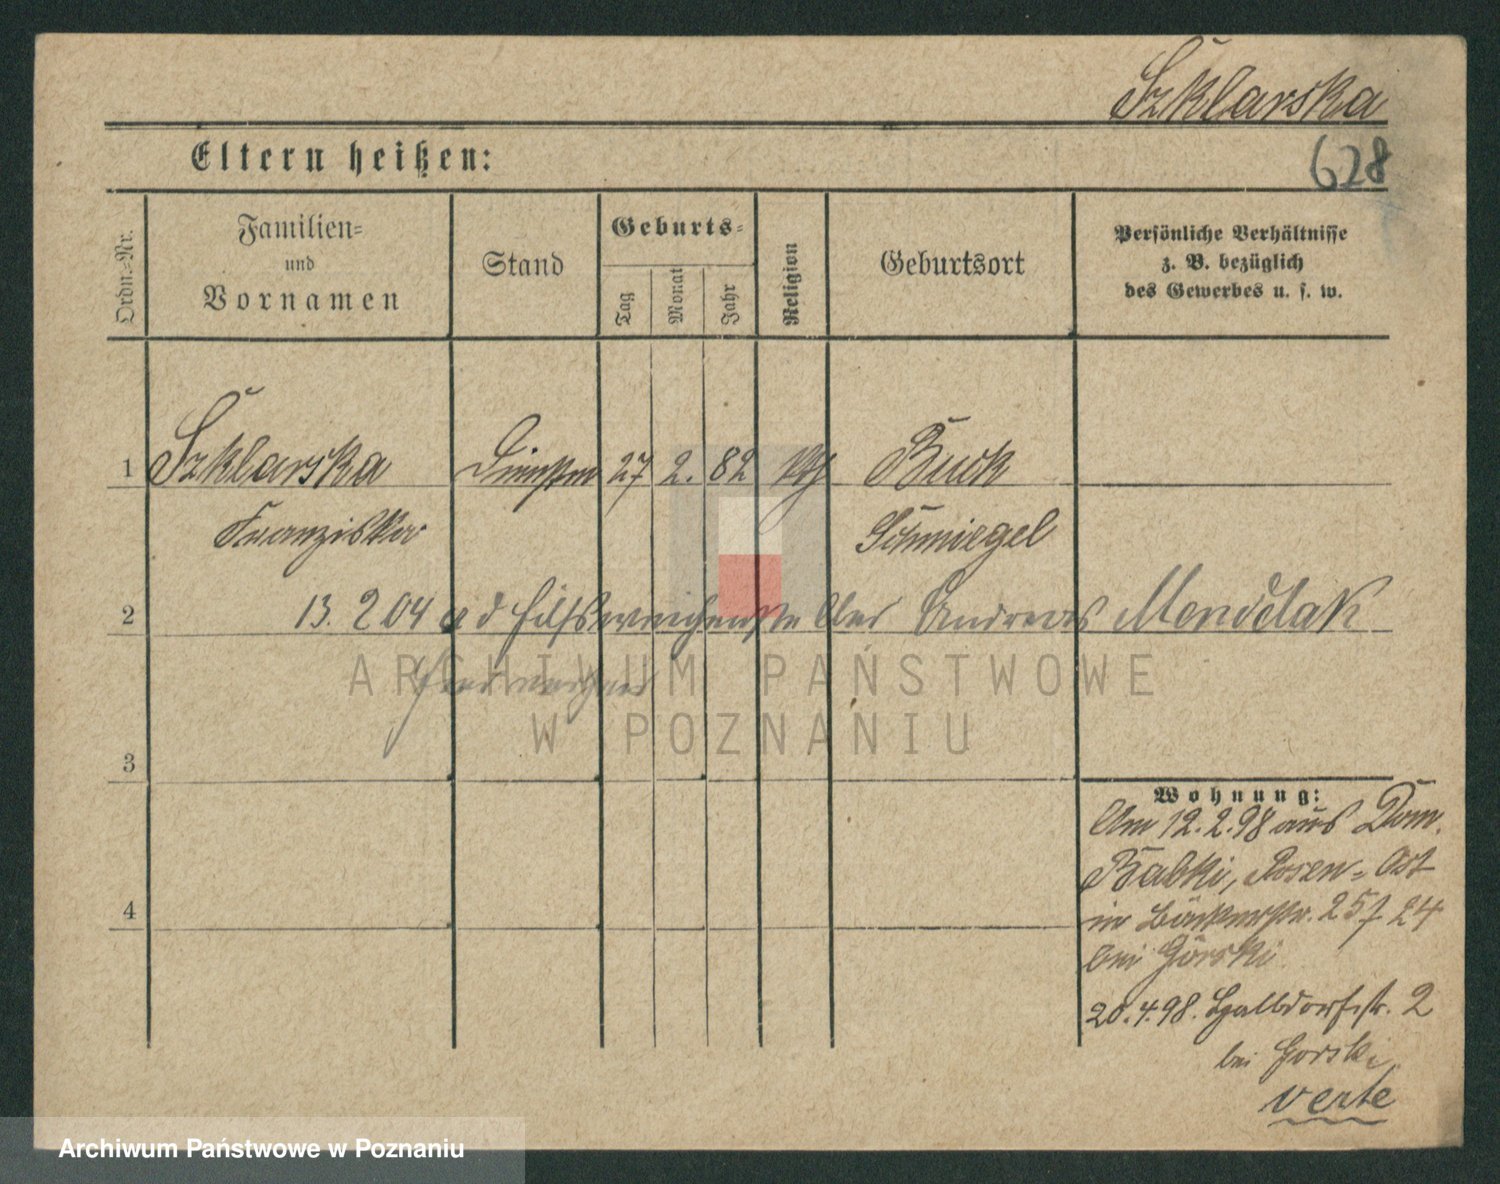 Szklarska
Eltern heißen:
628
Ordn.=Nr.
Familien=
und
Vornamen
Stand
Geburts=
Tag
Monat
Jahr
Religion
Geburtsort
Persönliche Verhältnisse
z. B. bezüglich
des Gewerbes u. s. w.
1 Szklarska 27 2. 82 kth Buck
Franziska Schmiegel
2 13. 2 04 Hilfsweichensteller Andreas Mendelak
ARCHIWUM PAŃSTWOWE
W POZNANIU
3
Wohnung:
Am 12.2.98 aus Dom.
Babki, Posen=Ost
in Bäckerstr. 25 / 24
bei Górski
4
20.4.98. Halbdorfstr. 2
bei Gorski
verte
Archiwum Państwowe w Poznaniu